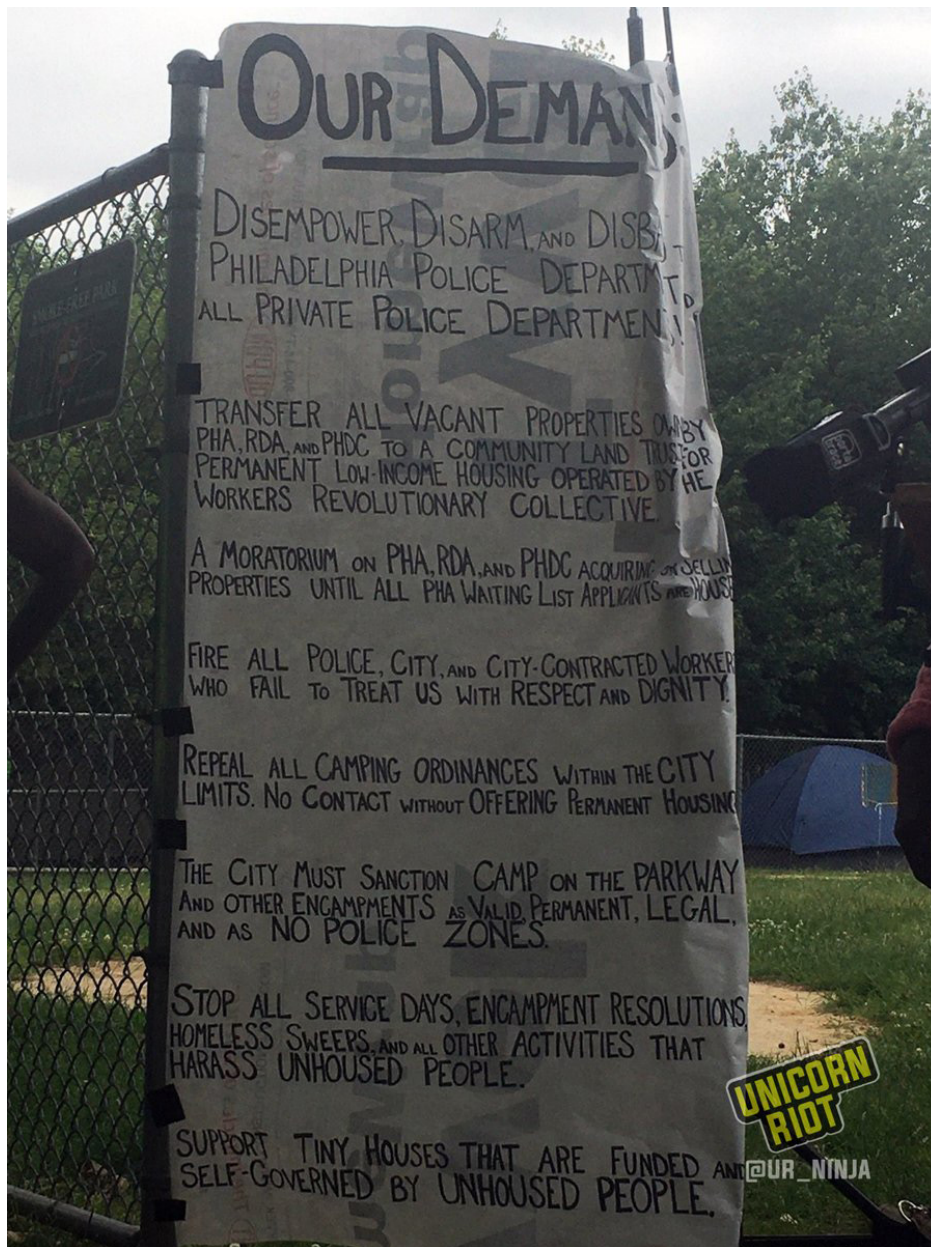 OUR DEMAN
DISEMPOWER, DISARM, AND DISB
PHILADELPHIA POLICE DEPARTM
ALL PRIVATE POLICE DEPARTMEN
TRANSFER ALL VACANT PROPERTIES OW BY
PHA, RDA, AND PHDC TO A COMMUNITY LAND TRUST FOR
PERMANENT LOW-INCOME HOUSING OPERATED BY HE
WORKERS REVOLUTIONARY COLLECTIVE.
A MORATORIUM ON PHA, RDA, AND PHDC ACQUIRING OR SELLIN
PROPERTIES UNTIL ALL PHA WAITING LIST APPLICANTS ARE HOUSE
FIRE ALL POLICE, CITY, AND CITY-CONTRACTED WORKER
WHO FAIL TO TREAT US WITH RESPECT AND DIGNITY.
REPEAL ALL CAMPING ORDINANCES WITHIN THE CITY
LIMITS. NO CONTACT WITHOUT OFFERING PERMANENT HOUSING
THE CITY MUST SANCTION CAMP ON THE PARKWAY
AND OTHER ENCAMPMENTS AS VALID, PERMANENT, LEGAL,
AND AS NO POLICE ZONES.
STOP ALL SERVICE DAYS, ENCAMPMENT RESOLUTIONS,
HOMELESS SWEEPS, AND ALL OTHER ACTIVITIES THAT
HARASS UNHOUSED PEOPLE.
SUPPORT TINY HOUSES THAT ARE FUNDED AND
SELF-GOVERNED BY UNHOUSED PEOPLE.
SMOKE-FREE PARK
UNICORN
RIOT
@UR_NINJA